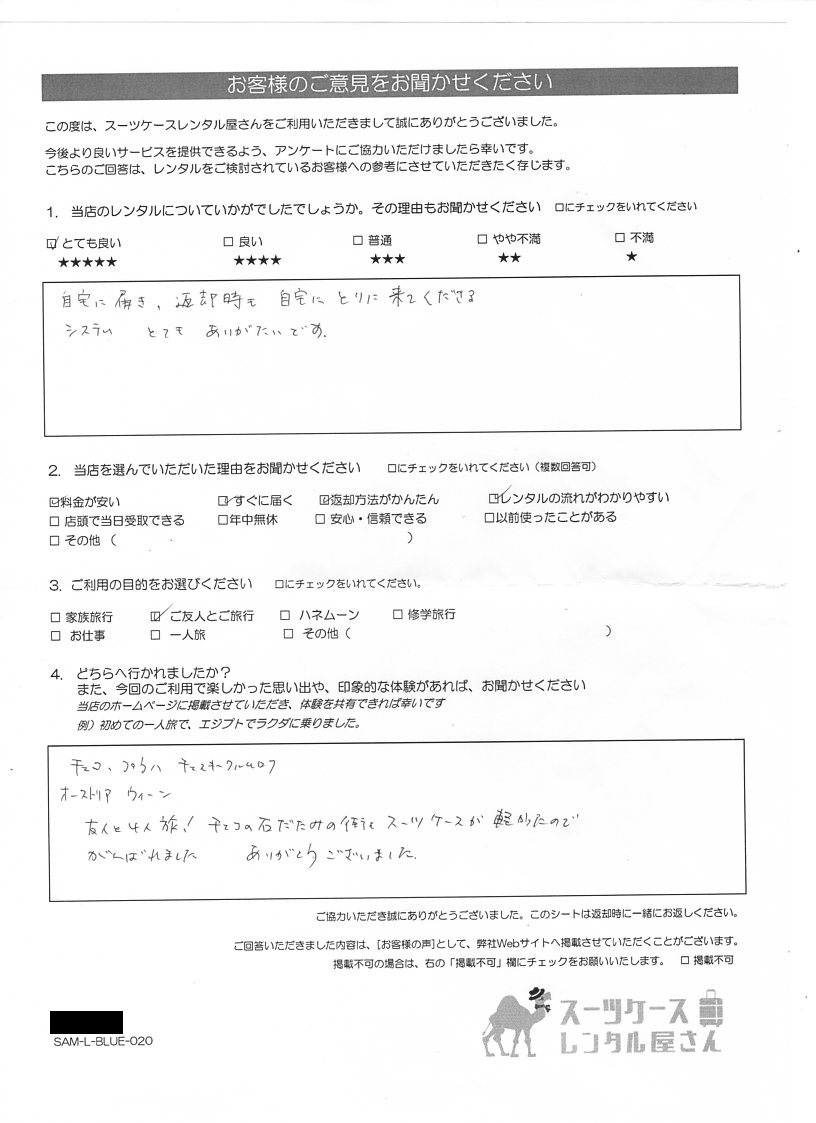 お客様のご意見をお聞かせください
この度は、スーツケースレンタル屋さんをご利用いただきまして誠にありがとうございました。
今後より良いサービスを提供できるよう、アンケートにご協力いただけましたら幸いです。
こちらのご回答は、レンタルをご検討されているお客様への参考にさせていただきたく存じます。
1. 当店のレンタルについていかがでしたでしょうか。その理由もお聞かせください □にチェックをいれてください
☑とても良い □ 良い □ 普通 □ やや不満 □ 不満
★★★★★ ★★★★ ★★★ ★★ ★
自宅に届き、返却時も自宅にとりに来てくださる
システム とても ありがたいです。
2. 当店を選んでいただいた理由をお聞かせください □にチェックをいれてください(複数回答可)
☑料金が安い ☑すぐに届く ☑返却方法がかんたん ☑レンタルの流れがわかりやすい
□ 店頭で当日受取できる □年中無休 □ 安心・信頼できる □以前使ったことがある
□ その他 ( )
3. ご利用の目的をお選びください □にチェックをいれてください。
□ 家族旅行 ☑ご友人とご旅行 □ ハネムーン □ 修学旅行
□ お仕事 □ 一人旅 □ その他 ( )
4. どちらへ行かれましたか?
また、今回のご利用で楽しかった思い出や、印象的な体験があれば、お聞かせください
当店のホームページに掲載させていただき、体験を共有できれば幸いです
例)初めての一人旅で、エジプトでラクダに乗りました。
チェコ、プラハ チェスキークルムロフ
オーストリア ウィーン
友人と4人旅! チェコの石だたみの街も スーツケースが軽かったので
がんばれました ありがとうございました.
ご協力いただき誠にありがとうございました。このシートは返却時に一緒にお返しください。
ご回答いただきました内容は、[お客様の声]として、弊社Webサイトへ掲載させていただくことがございます。
掲載不可の場合は、右の「掲載不可」欄にチェックをお願いいたします。 □ 掲載不可
SAM-L-BLUE-020
スーツケース
レンタル屋さん